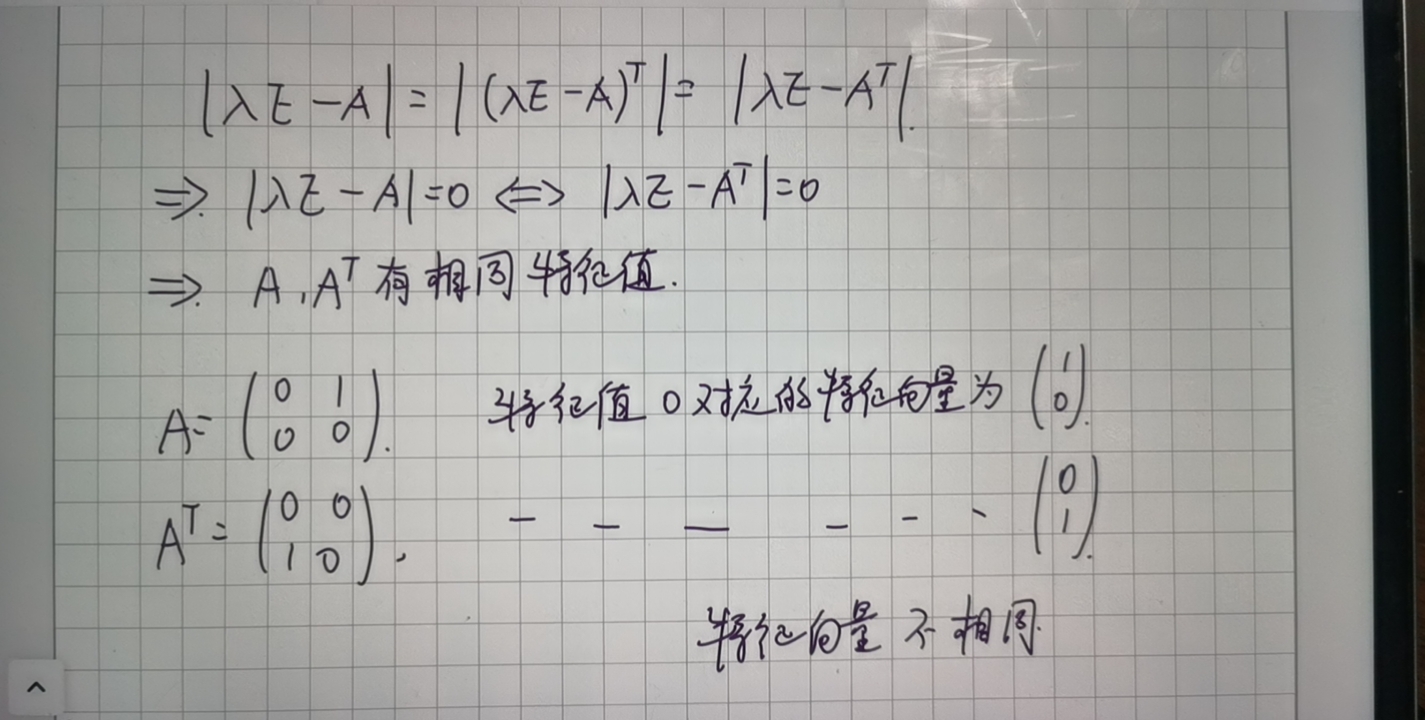 |λE-A|=|(λE-A)ᵀ|=|λE-Aᵀ|.
⇒. |λE-A|=0 ⇔ |λE-Aᵀ|=0
⇒. A,Aᵀ有相同特征值.
A=(0 1; 0 0). 特征值0对应的特征向量为(1; 0).
Aᵀ=(0 0; 1 0), - - - - - - (0; 1).
特征向量不相同.